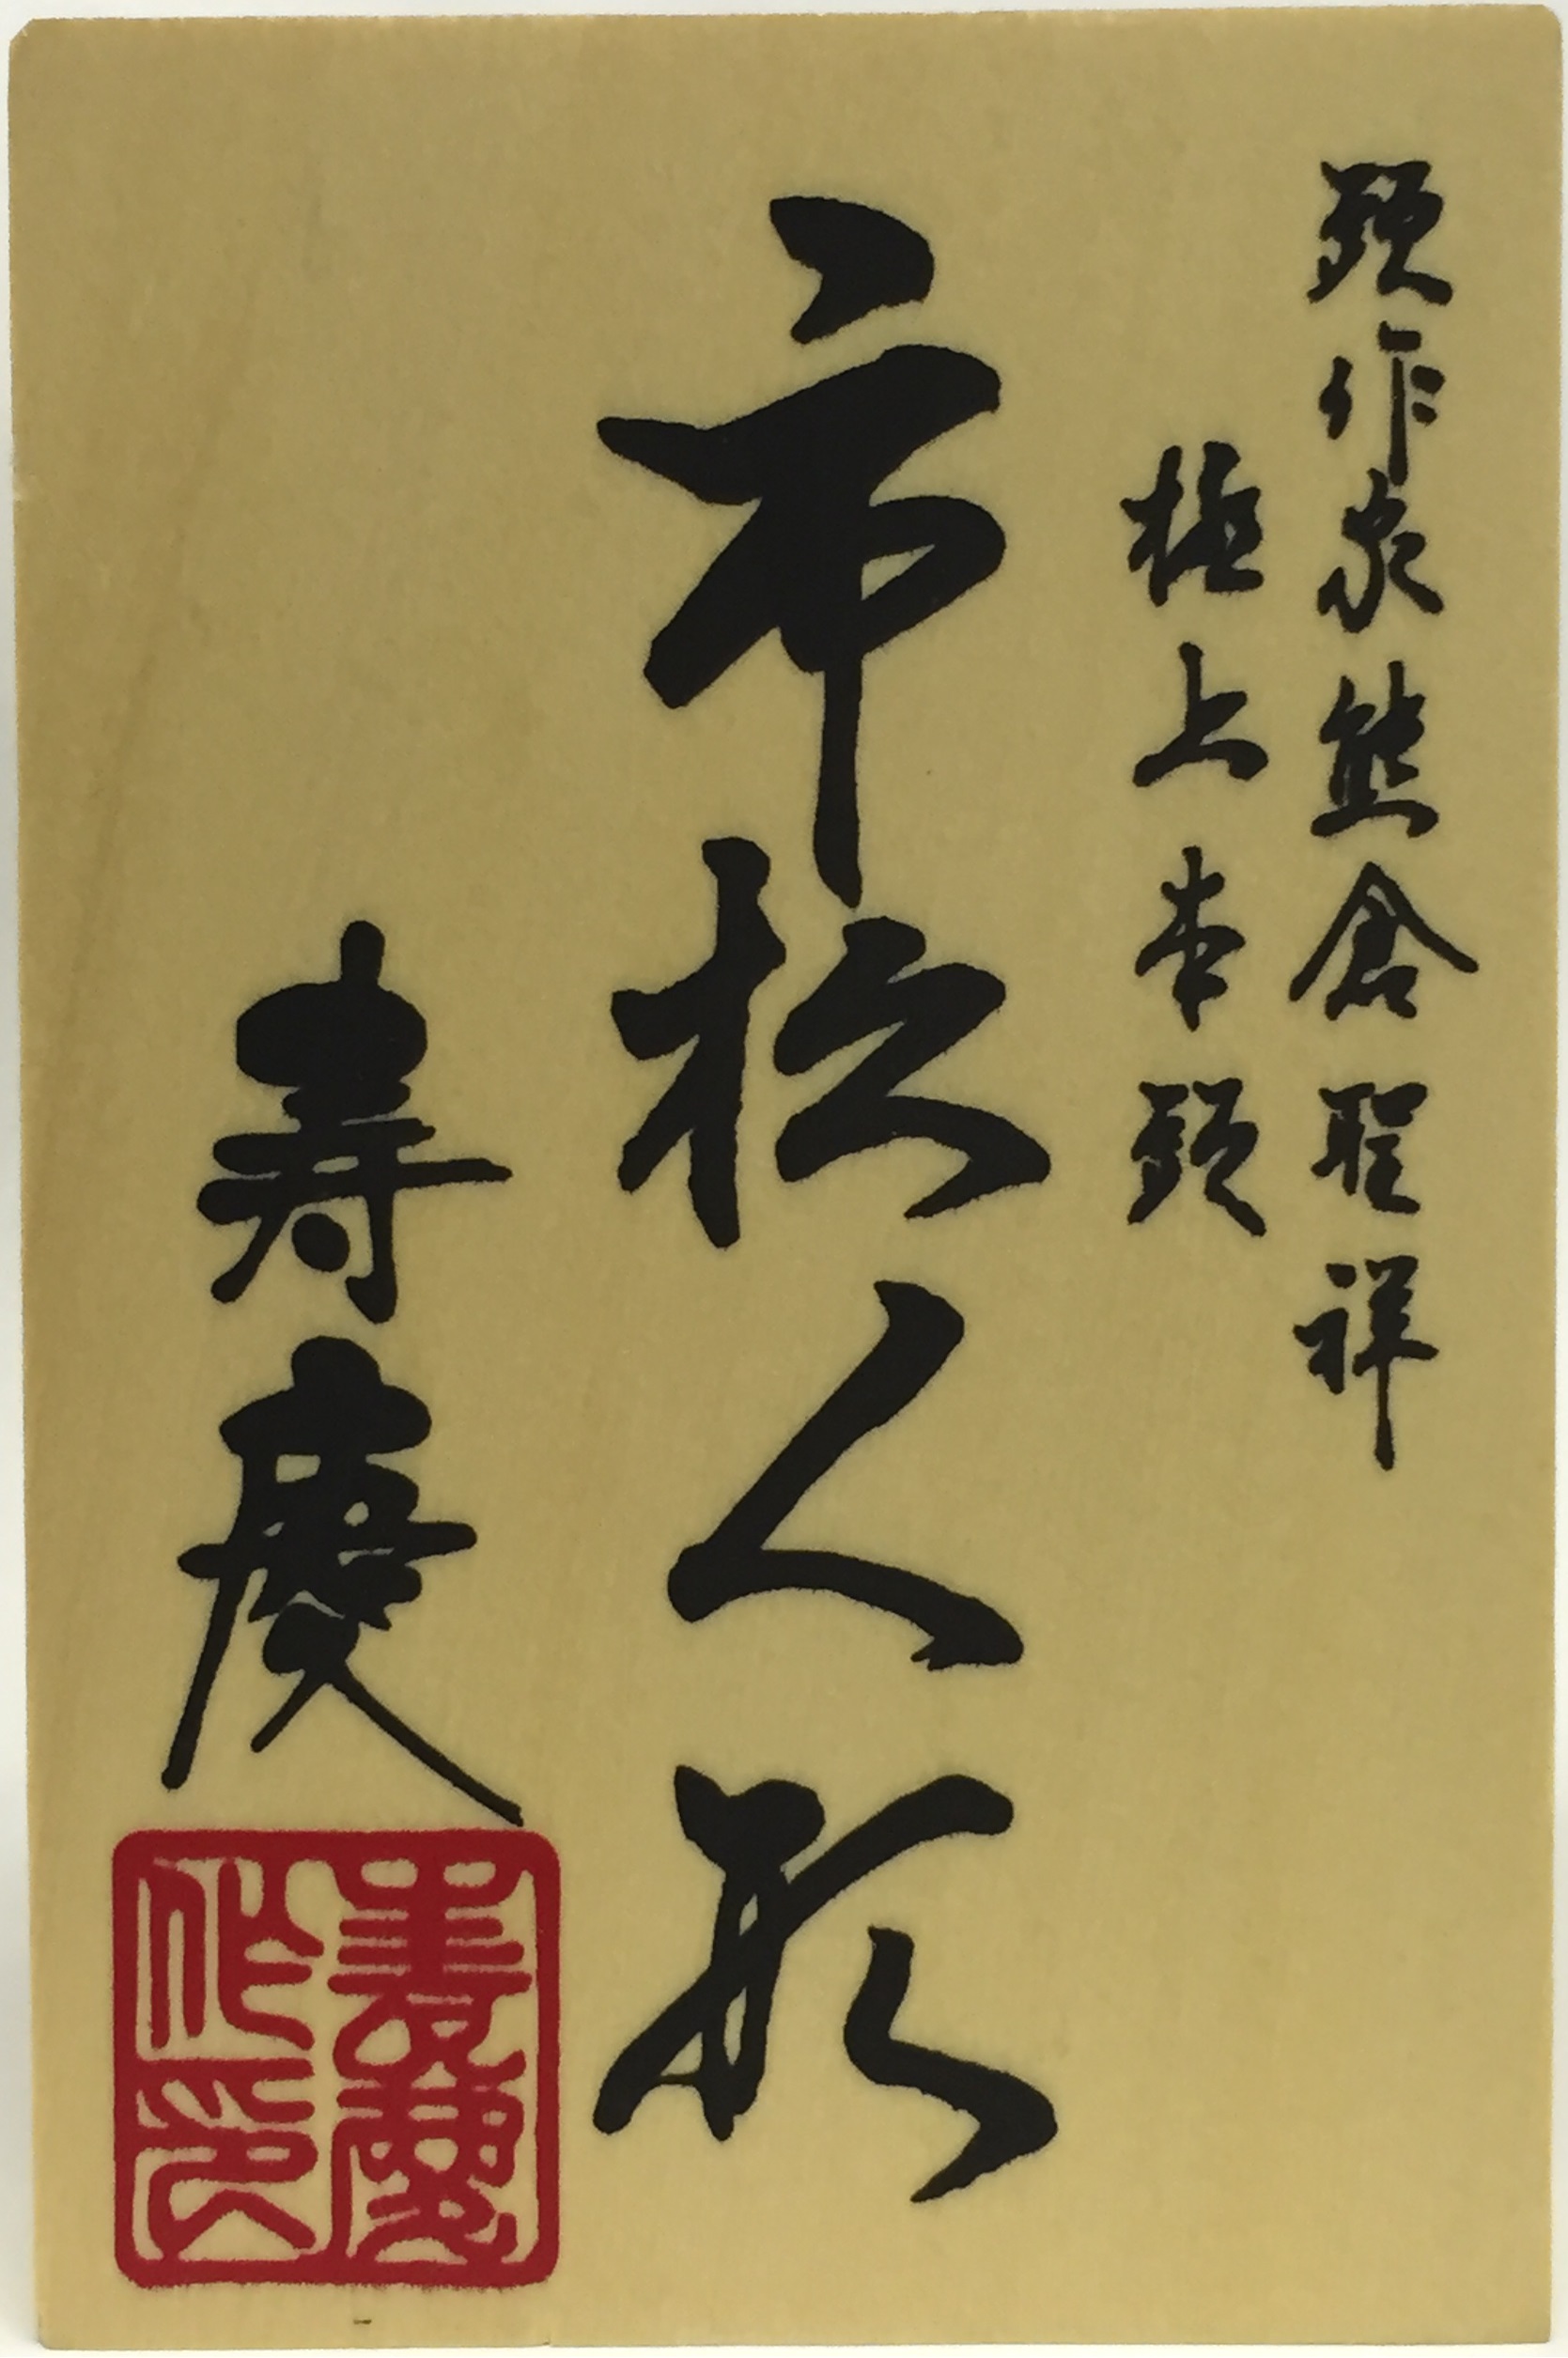 頭作家熊倉聖祥
極上本頭
市松人形
寿慶
寿慶作印